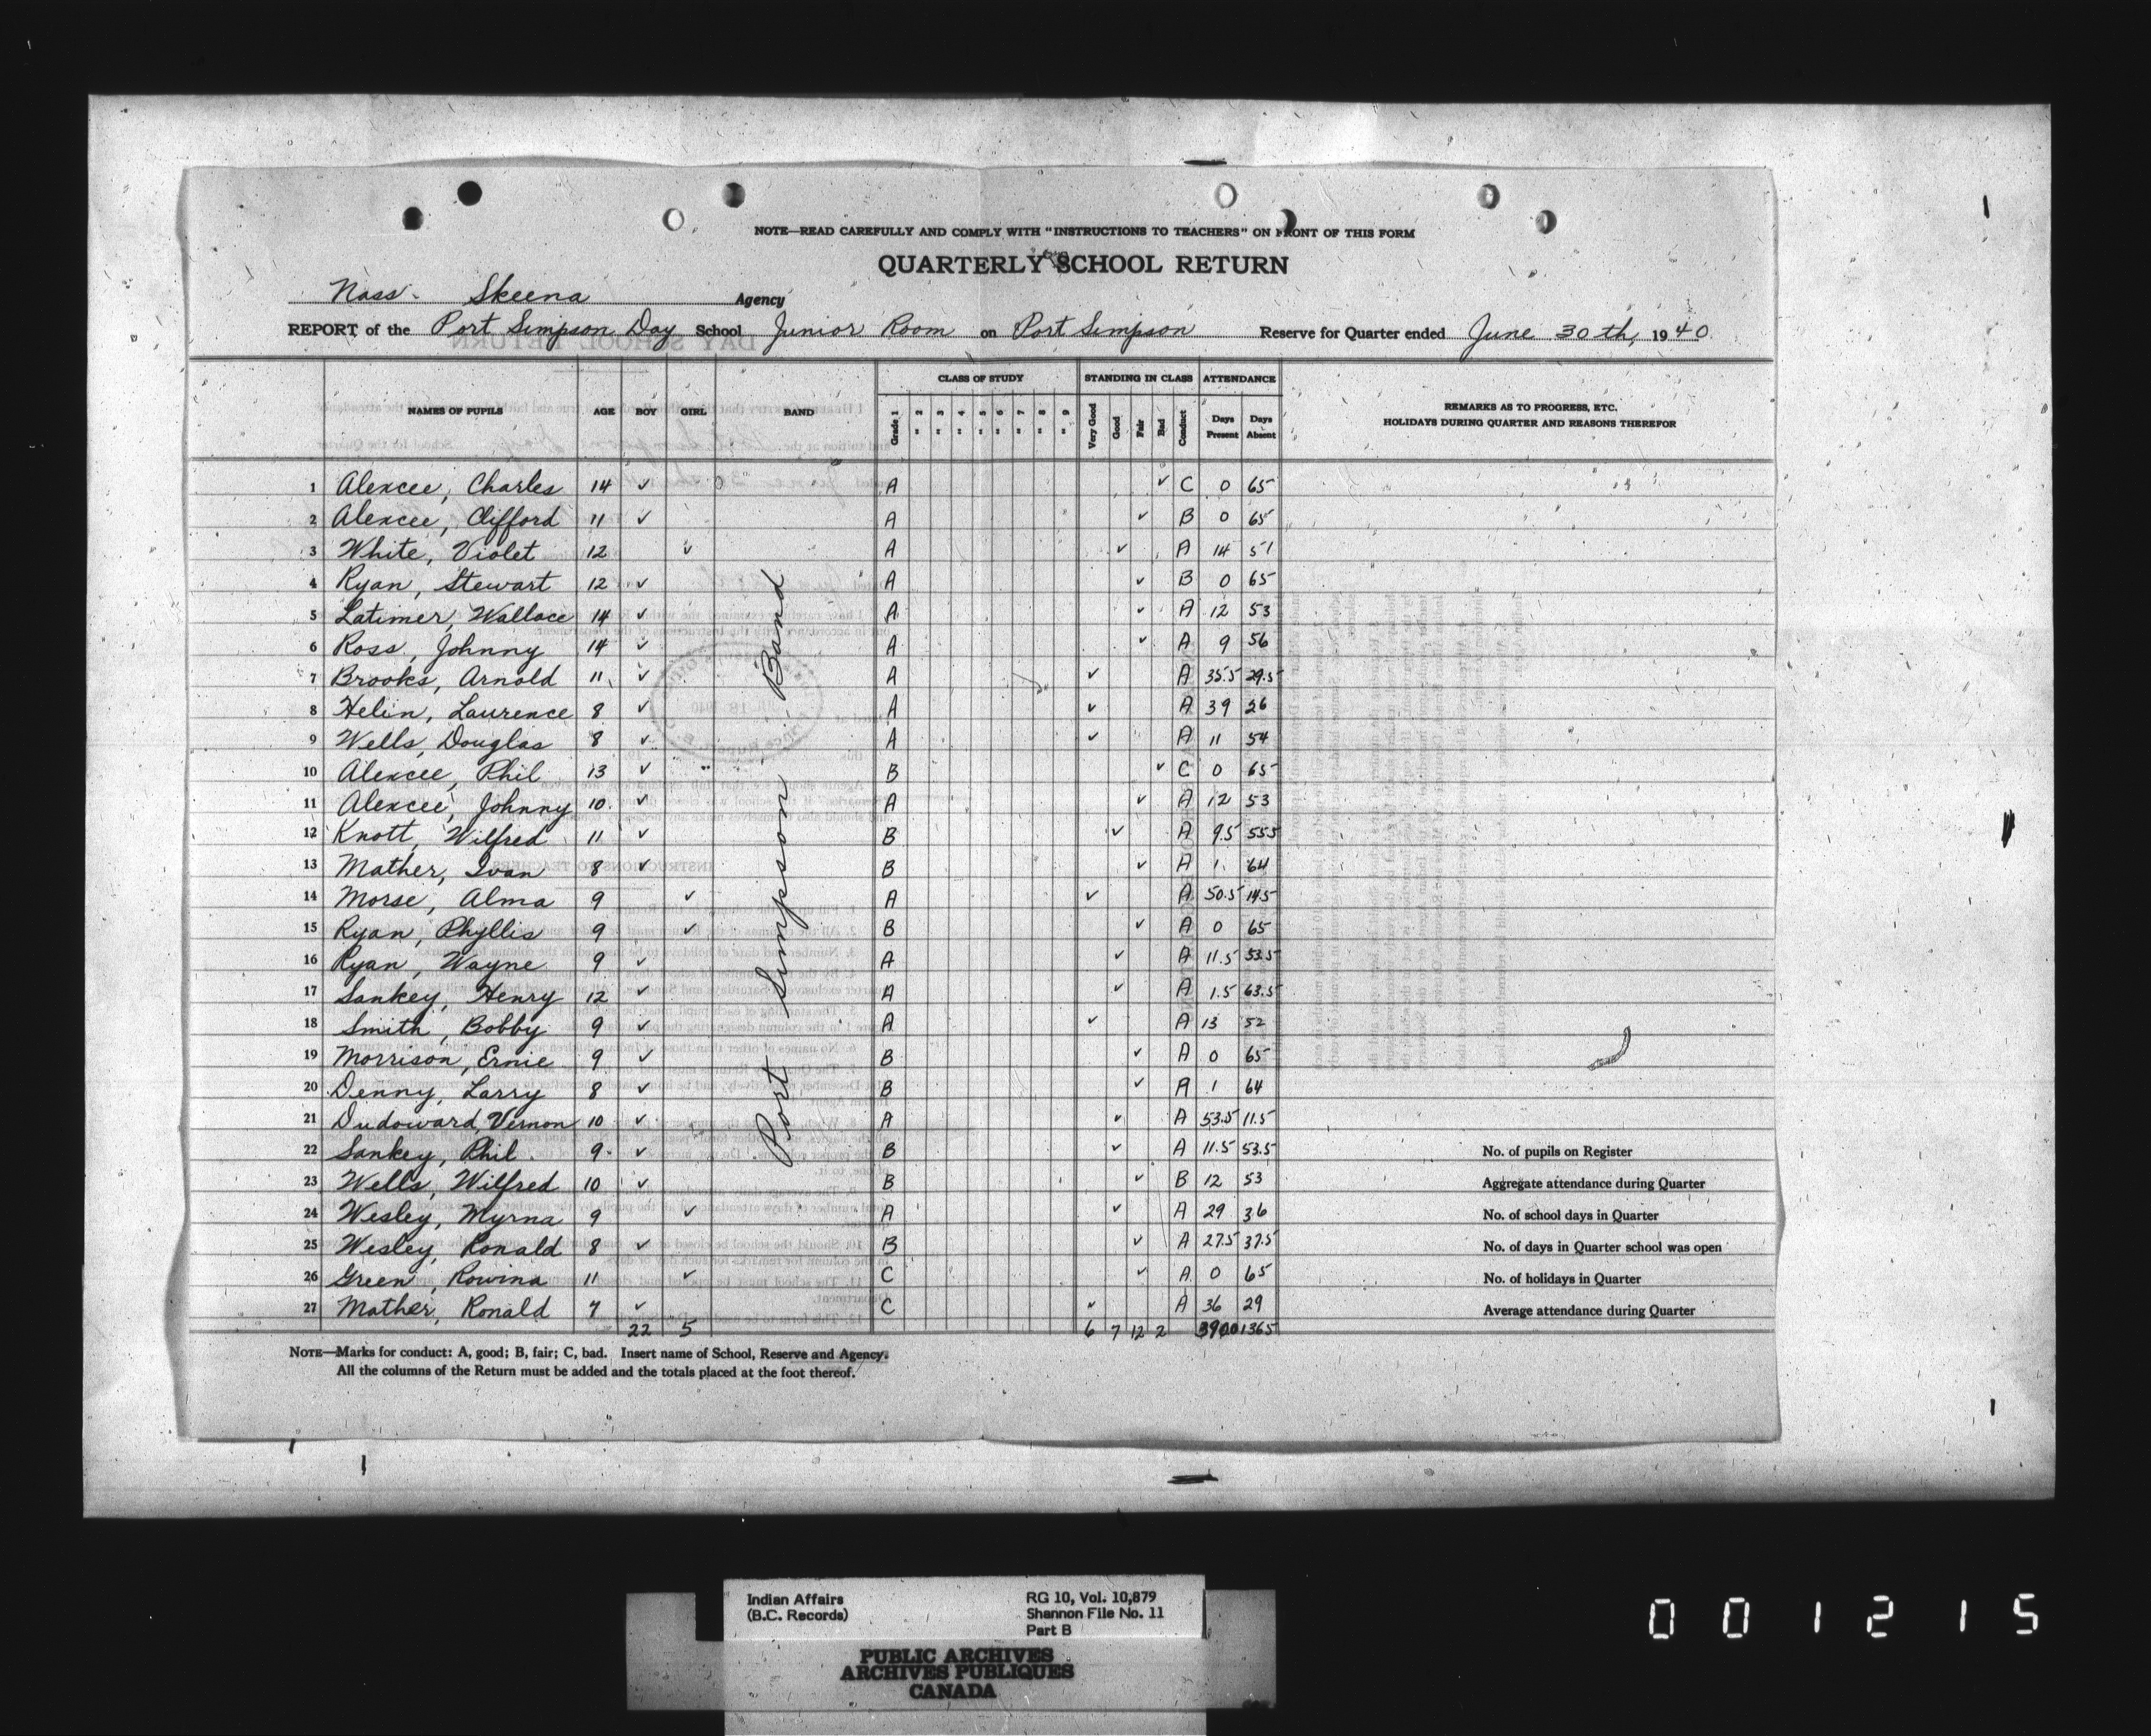 NOTE—READ CAREFULLY AND COMPLY WITH "INSTRUCTIONS TO TEACHERS" ON FRONT OF THIS FORM
QUARTERLY SCHOOL RETURN
Nass - Skeena Agency
REPORT of the Port Simpson Day School Junior Room on Port Simpson Reserve for Quarter ended June 30th, 1940
CLASS OF STUDY STANDING IN CLASS ATTENDANCE
NAMES OF PUPILS AGE BOY GIRL BAND Grade 1 " 2 " 3 " 4 " 5 " 6 " 7 " 8 " 9 Very Good Good Fair Bad Conduct Days Present Days Absent REMARKS AS TO PROGRESS, ETC.
HOLIDAYS DURING QUARTER AND REASONS THEREFOR
Port Simpson Band
1 Alexcee, Charles 14 ✓ A ✓ C 0 65
2 Alexcee, Clifford 11 ✓ A ✓ B 0 65
3 White, Violet 12 ✓ A ✓ A 14 51
4 Ryan, Stewart 12 ✓ A ✓ B 0 65
5 Latimer, Wallace 14 ✓ A ✓ A 12 53
6 Ross, Johnny 14 ✓ A ✓ A 9 56
7 Brooks, Arnold 11 ✓ A ✓ A 35.5 29.5
8 Helin, Laurence 8 ✓ A ✓ A 39 26
9 Wells, Douglas 8 ✓ A ✓ A 11 54
10 Alexcee, Phil 13 ✓ B ✓ C 0 65
11 Alexcee, Johnny 10 ✓ A ✓ A 12 53
12 Knott, Wilfred 11 ✓ B ✓ A 9.5 55.5
13 Mather, Ivan 8 ✓ B ✓ A 1 64
14 Morse, Alma 9 ✓ A ✓ A 50.5 14.5
15 Ryan, Phyllis 9 ✓ B ✓ A 0 65
16 Ryan, Wayne 9 ✓ A ✓ A 11.5 53.5
17 Sankey, Henry 12 ✓ A ✓ A 1.5 63.5
18 Smith, Bobby 9 ✓ A ✓ A 13 52
19 Morrison, Ernie 9 ✓ B ✓ A 0 65
20 Denny, Larry 8 ✓ B ✓ A 1 64
21 Dudoward, Vernon 10 ✓ A ✓ A 53.5 11.5
22 Sankey, Phil 9 ✓ B ✓ A 11.5 53.5 No. of pupils on Register
23 Wells, Wilfred 10 ✓ B ✓ B 12 53 Aggregate attendance during Quarter
24 Wesley, Myrna 9 ✓ A ✓ A 29 36 No. of school days in Quarter
25 Wesley, Ronald 8 ✓ B ✓ A 27.5 37.5 No. of days in Quarter school was open
26 Green, Rowina 11 ✓ C ✓ A 0 65 No. of holidays in Quarter
27 Mather, Ronald 7 ✓ C ✓ A 36 29 Average attendance during Quarter
22 5 6 7 12 2 390.0 1365
NOTE—Marks for conduct: A, good; B, fair; C, bad. Insert name of School, Reserve and Agency.
All the columns of the Return must be added and the totals placed at the foot thereof.
Indian Affairs
(B.C. Records)
RG 10, Vol. 10,879
Shannon File No. 11
Part B
PUBLIC ARCHIVES
ARCHIVES PUBLIQUES
CANADA
001215